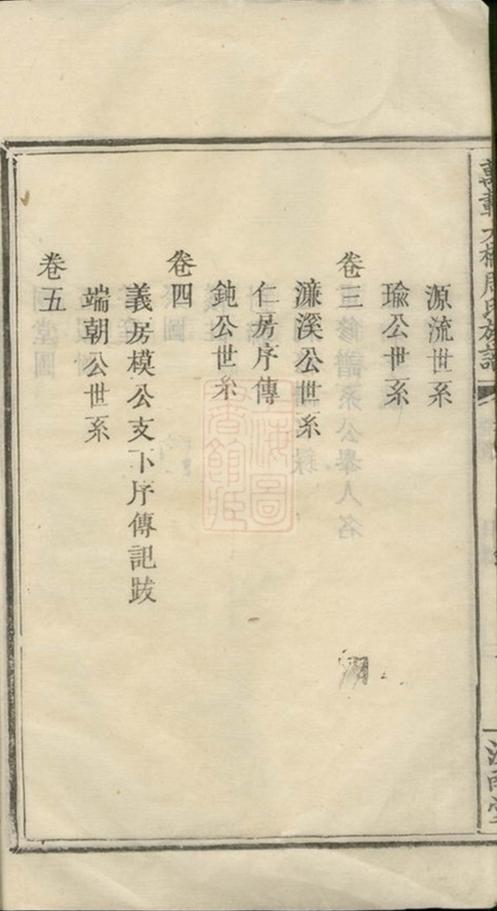 源流世系
瑜公世系
卷三
濂溪公世系
仁房序傳
鈍公世系
卷四
義房模公支下序傳記跋
端朝公世系
卷五